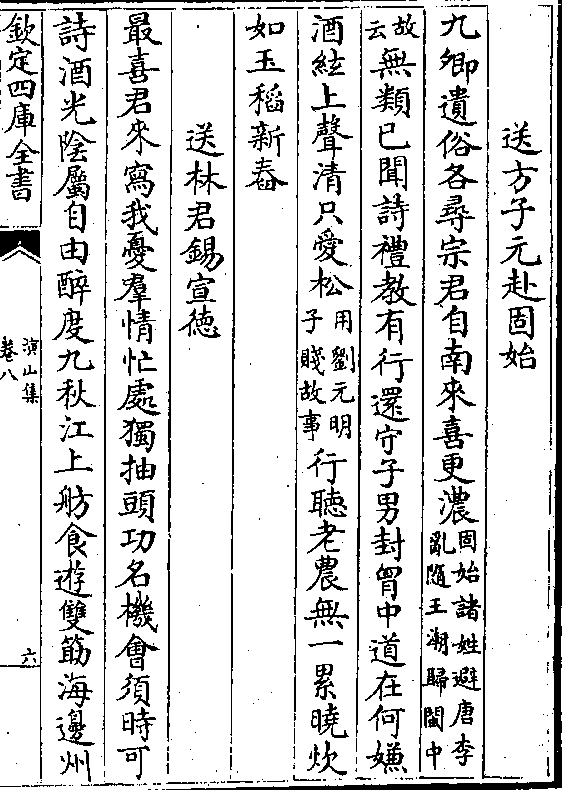 送方子元赴固始
九卿遺俗各尋宗君自南來喜更濃固始諸姓避唐李亂隨王潮歸閩中
故云無類已聞詩禮教有行還守子男封胷中道在何嫌
酒絃上聲清只愛松用劉元明子賤故事行聽老農無一累曉炊
如玉稻新舂
送林君錫宣徳
最喜君來寫我憂羣情忙處獨抽頭功名機會須時可
詩酒光陰屬自由醉度九秋江上舫食遊雙筯海邊州
欽定四庫全書
演山集
卷八
六